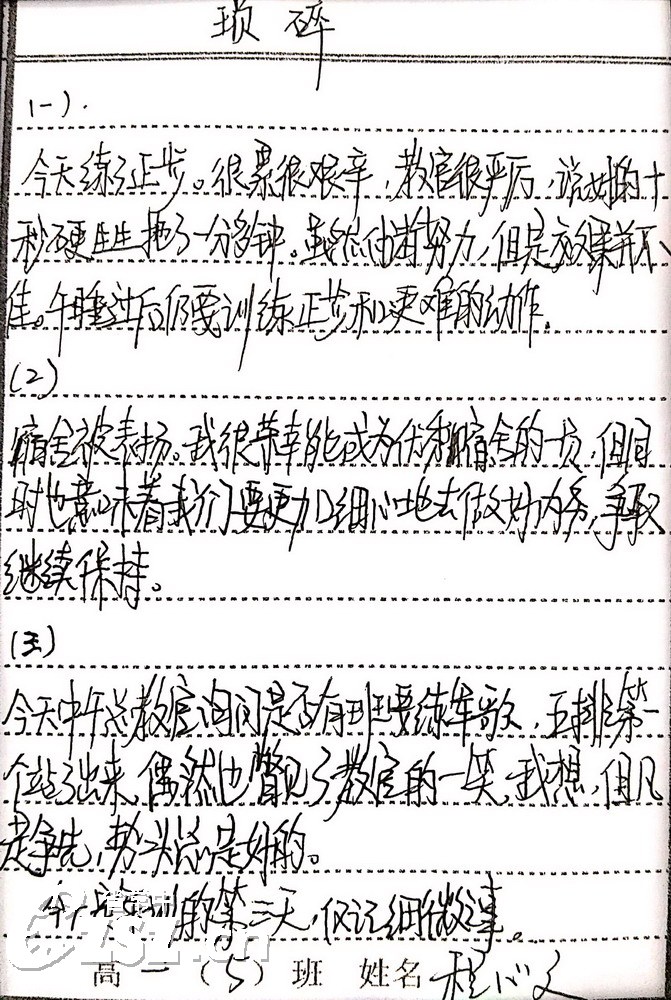 琐碎
(一).
今天练了正步。很累很艰辛,教官很严厉,说好的十
秒硬生生拖了一分多钟。虽然他都努力,但是效果并不
佳。午睡过后仍要训练正步和更难的动作.
(2)
宿舍被表扬。我很荣幸能成为优秀宿舍的一员,但同
时也意味着我们要更加细心地去做好内务,争取
继续保持。
(三)
今天中午总教官询问是否有班要练军歌,五排第一
个站了出来,偶然也瞥见了教官的一笑,我想,但凡
是争先,势头总是好的。
今天是军训的第三天,仅记细微事。
高一(5)班 姓名 程心